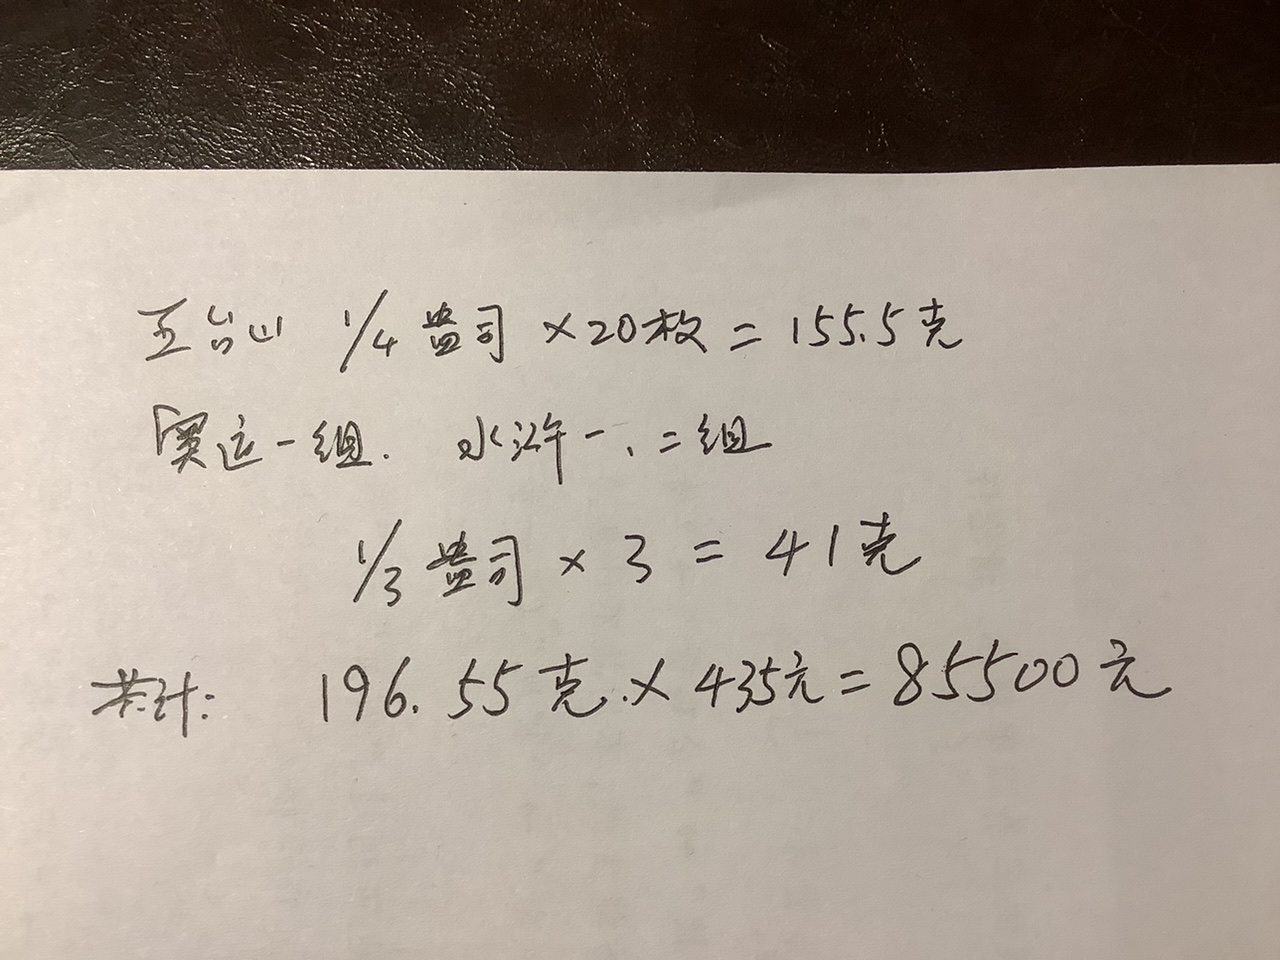 五台山 1/4 盎司 ×20枚 = 155.5克
奥运一组. 水浒一、二组
1/3 盎司 × 3 = 41克
共计: 196.55克.× 435元=85500元